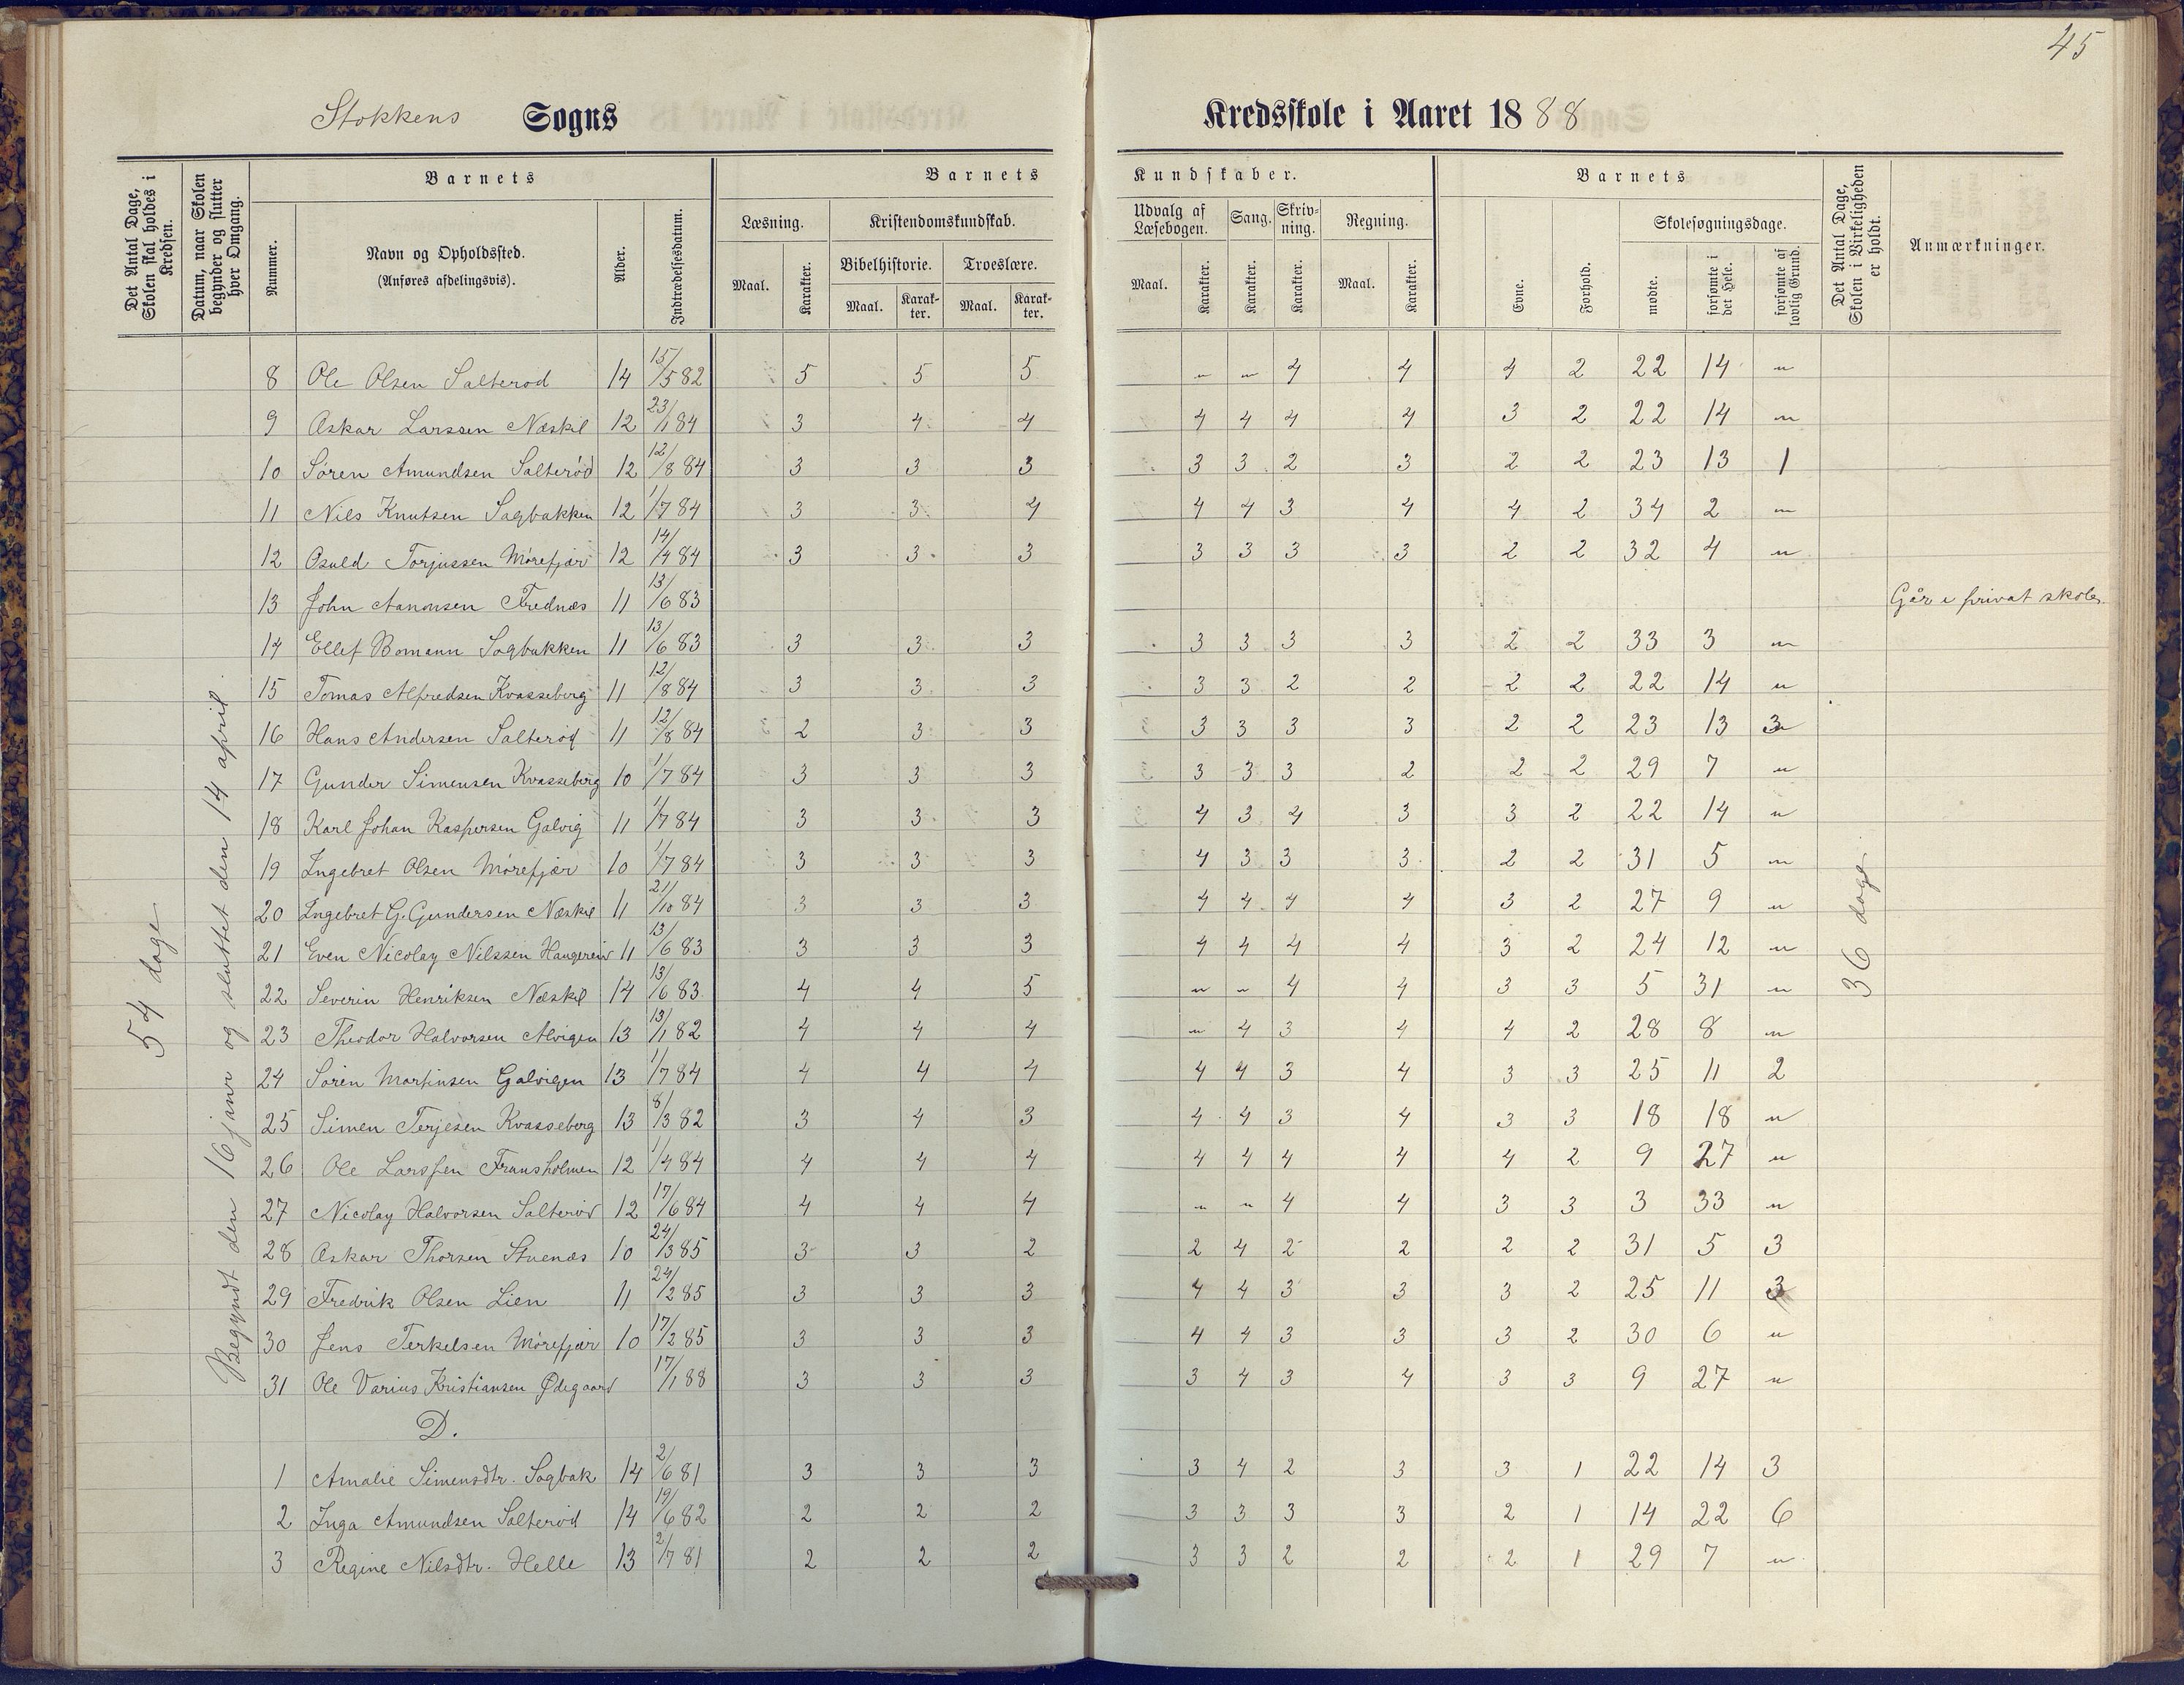 45
Stokkens Sogns Kredsskole i Aaret 1888
Det Antal Dage, Skolen skal holdes i Kredsen.
Datum, naar Skolen begynder og slutter hver Omgang.
Barnets
Nummer.
Navn og Opholdssted. (Anføres afdelingsvis).
Alder.
Indtrædelsesdatum.
Barnets Kundskaber.
Læsning. Maal. Karakter.
Kristendomskundskab.
Bibelhistorie. Maal. Karakter.
Troeslære. Maal. Karakter.
Udvalg af Læsebogen. Maal. Karakter.
Sang. Karakter.
Skrivning. Karakter.
Regning. Maal. Karakter.
Barnets
Evne.
Forhold.
Skolesøgningsdage.
mødte.
forsømte i det Hele.
forsømte af lovlig Grund.
Det Antal Dage, Skolen i Virkeligheden er holdt.
Anmærkninger.
54 dage
Begyndt den 16 januar og sluttet den 14 april.
36 dage
8 Ole Olsen Salterød 14 15/5 82 5 5 5 " " 4 4 4 2 22 14 "
9 Oskar Larssen Neskil 12 23/1 84 3 4 4 4 4 4 4 3 2 22 14 "
10 Søren Amundsen Salterød 12 12/8 84 3 3 3 3 3 2 3 2 2 23 13 1
11 Nils Knutsen Sagbakken 12 1/7 84 3 3 4 4 4 3 4 4 2 34 2 "
12 Osuld Torjussen Mørefjær 12 14/4 84 3 3 3 3 3 3 3 2 2 32 4 "
13 John Aanonsen Frednæs 11 13/6 83 Går i privat skole.
14 Ellef Bomann Sagbakken 11 13/6 83 3 3 3 3 3 3 3 2 2 33 3 "
15 Tomas Alfredsen Kvasseberg 11 12/8 84 3 3 3 3 3 2 2 2 2 22 14 "
16 Hans Andersen Salterød 11 12/8 84 2 3 3 3 3 3 3 2 2 23 13 3
17 Gunder Simensen Kvasseberg 10 1/7 84 3 3 3 3 3 3 2 2 2 29 7 "
18 Karl Johan Kaspersen Galvig 11 1/7 84 3 3 3 4 3 4 3 3 2 22 14 "
19 Ingebret Olsen Mørefjær 10 1/7 84 3 3 3 4 3 3 3 2 2 31 5 "
20 Ingebret G. Gundersen Næskil 11 21/10 84 3 3 3 4 4 4 4 3 2 27 9 "
21 Even Nicolay Nilssen Haugereid 11 13/6 83 3 3 3 4 4 4 4 3 2 24 12 "
22 Severin Henriksen Næskil 14 13/6 83 4 4 5 " " 4 4 3 3 5 31 "
23 Theodor Halvorsen Alvigen 13 13/1 82 4 4 4 " 4 3 4 4 2 28 8 "
24 Søren Martinsen Galvigen 13 1/7 84 4 4 4 4 4 3 4 3 3 25 11 2
25 Simen Terjesen Kvasseberg 13 8/3 82 3 4 3 4 4 3 4 3 3 18 18 "
26 Ole Larssen Fransholmen 12 1/4 84 4 4 4 4 4 4 4 4 2 9 27 "
27 Nicolay Halvorsen Salterød 12 17/6 84 4 4 4 " " 4 4 3 3 3 33 "
28 Oskar Thorsen Stuenæs 10 24/3 85 3 3 2 2 4 2 2 2 2 31 5 3
29 Fredrik Olsen Lien 11 24/2 85 3 3 3 4 4 3 3 3 2 25 11 3
30 Jens Terkelsen Mørefjær 10 17/2 85 3 3 3 4 4 3 3 3 2 30 6 "
31 Ole Varius Kristiansen Ødegaard 17/1 88 3 3 3 3 4 3 4 3 3 9 27 "
D.
1 Amalie Simensdtr. Sagbak 14 2/6 81 3 3 3 3 4 2 3 3 1 22 14 3
2 Inga Amundsen Salterød 14 19/6 82 2 2 2 3 3 3 3 2 1 14 22 6
3 Regine Nilsdtr. Helle 13 2/7 81 2 2 2 3 3 2 2 2 1 29 7 "